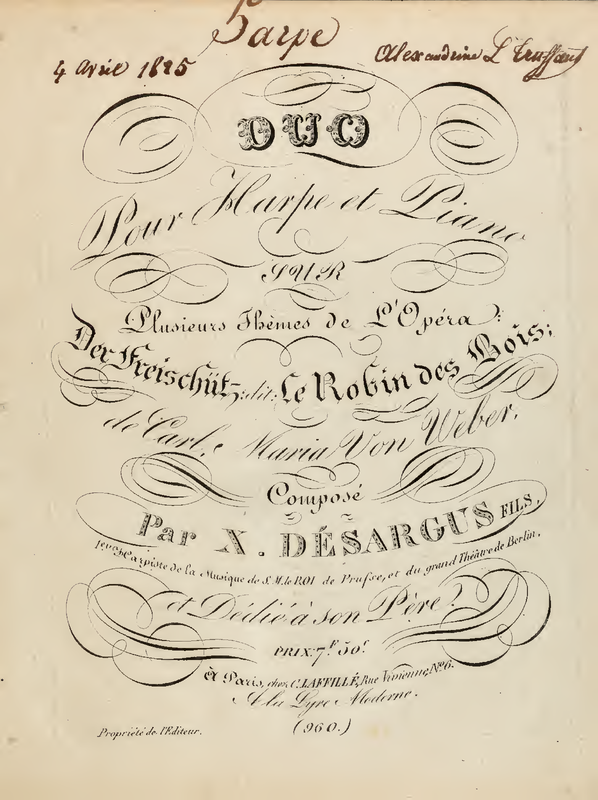 Harpe
4 Avril 1825
Alexandrine
DUO
Pour Harpe et Piano
SUR
Plusieurs Thèmes de L'Opéra:
Der Freischütz; dit: Le Robin des Bois;
de Carl: Maria Von Weber.
Composé
Par X. DÉSARGUS FILS,
1er Harpiste de la Musique de S. M. le ROI de Prusse, et du grand Théâtre de Berlin.
et Dédié à son Père.
PRIX: 7F 50c
à Paris, chez C. LAFFILLÉ, Rue Vivienne, No 6.
A la Lyre Moderne.
(960.)
Propriété de l'Editeur.